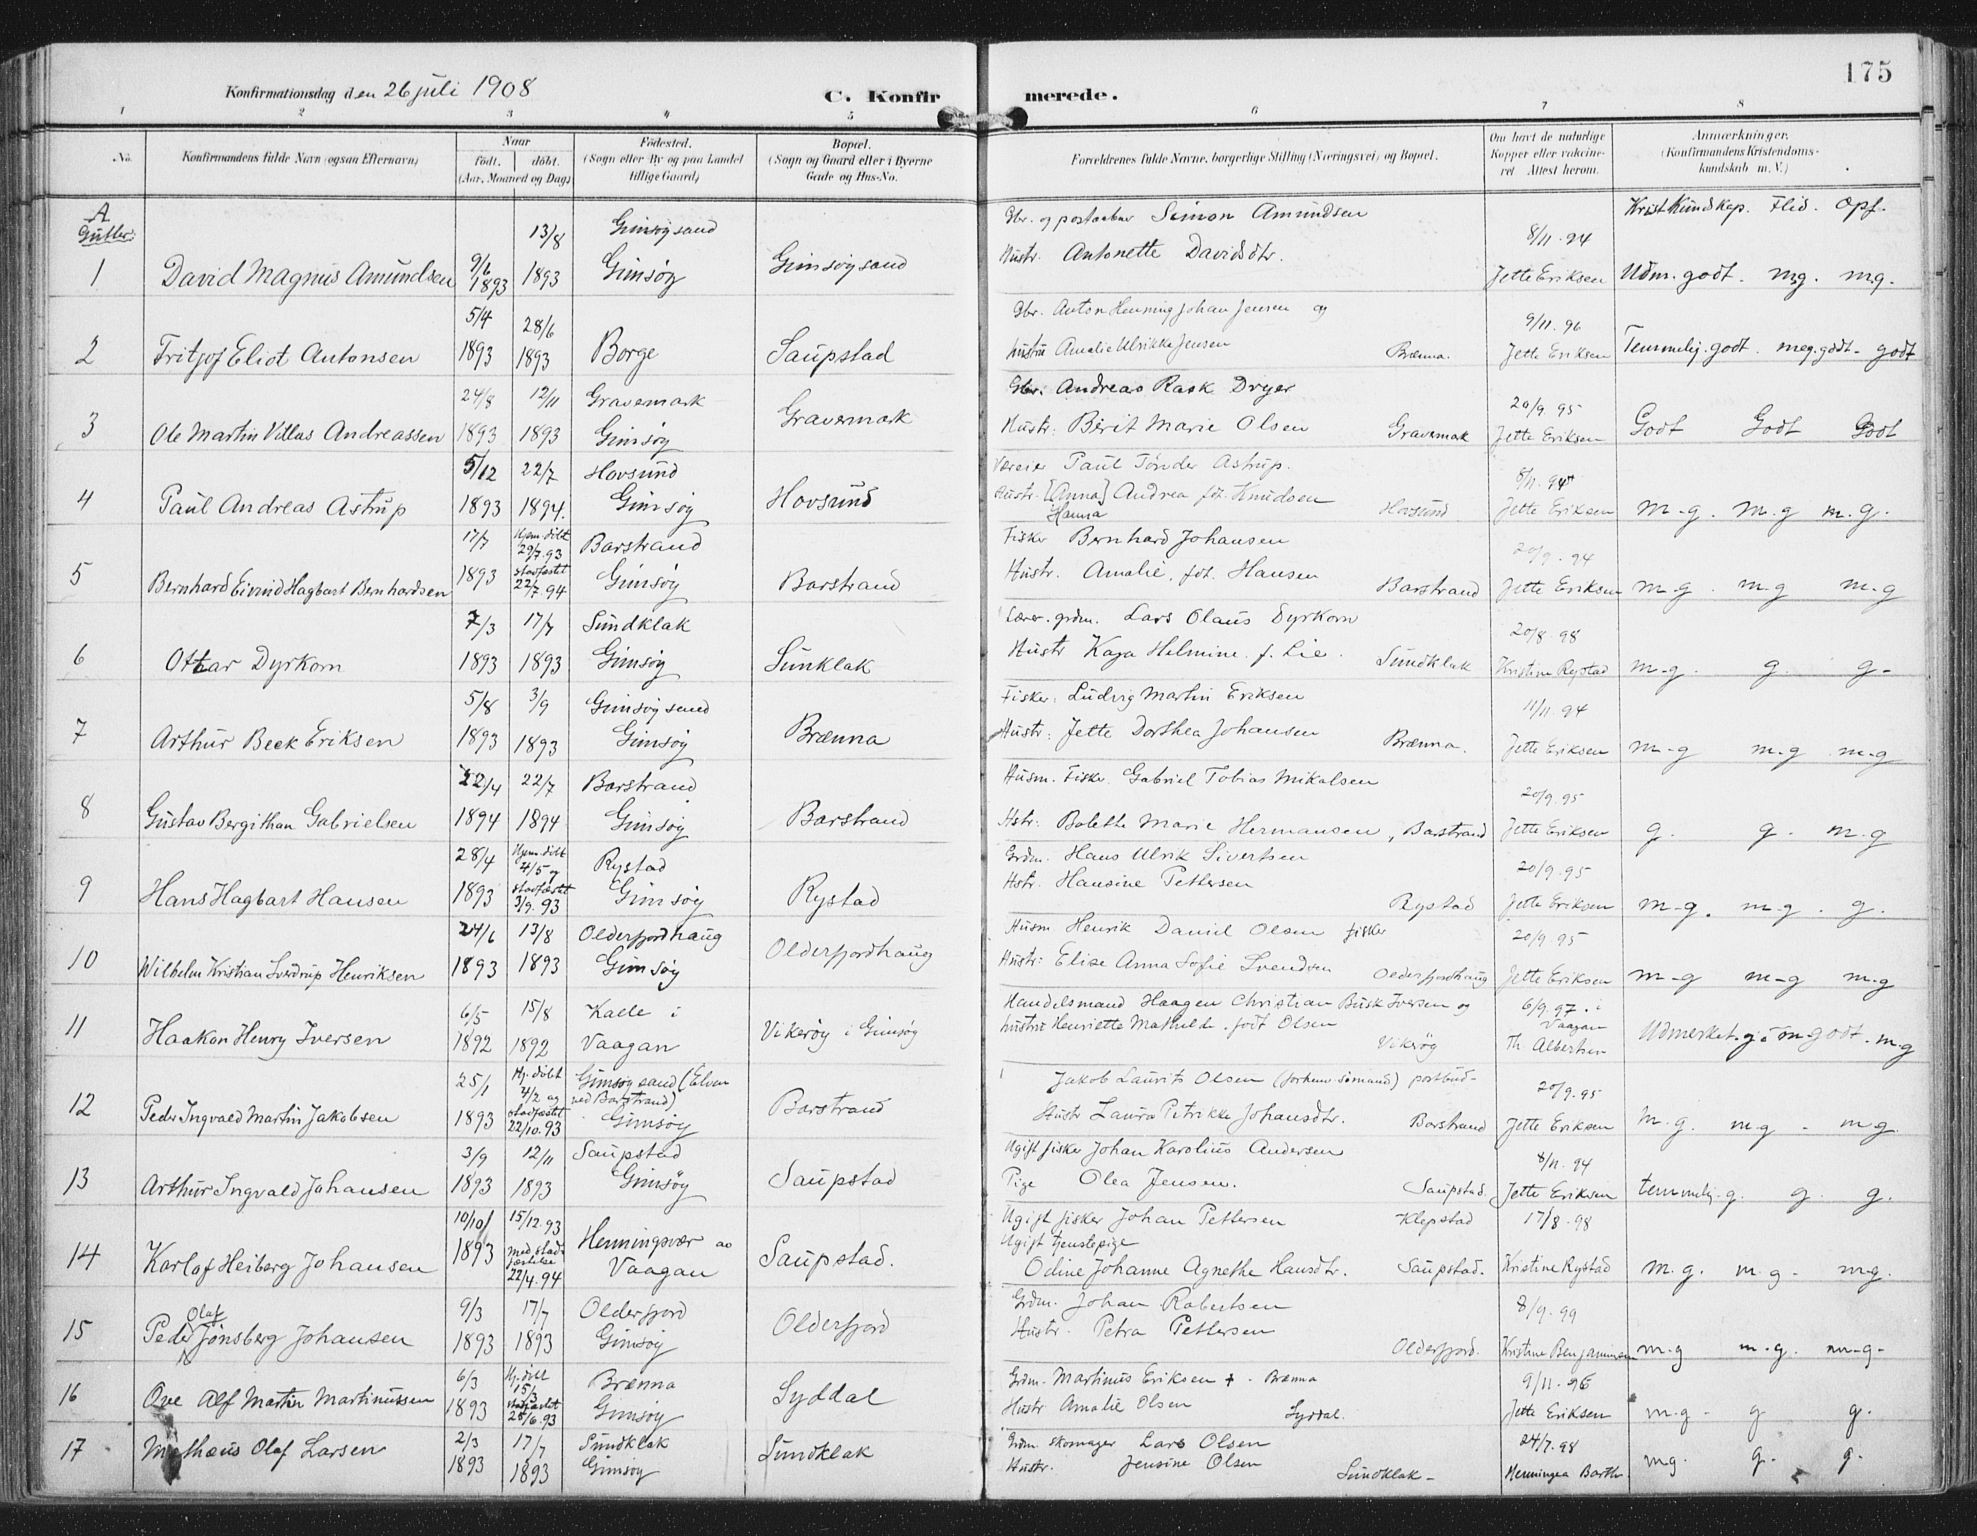 175
Konfirmationsdag den 26 juli 1908
C. Konfirmerede.
1 2 3 4 5 6 7 8
No.
Konfirmandens fulde Navn (ogsaa Efternavn)
Naar
født. døbt.
(Aar, Maaned og Dag)
Fødested.
(Sogn eller By og paa Landet
tillige Gaard)
Bopæl.
(Sogn og Gaard eller i Byerne
Gade og Hus-No.
Forældrenes fulde Navne, borgerlige Stilling (Næringsvei) og Bopæl.
Om havt de naturlige
Kopper eller vakcine-
ret Attest herom.
Anmærkninger.
(Konfirmandens Kristendoms-
kundskab m. V.)
A
Gutter:
Krist Kundskap. Flid. Opf.
1 David Magnus Amundsen 9/6 1893 13/8 1893 Gimsøysand Gimsøy Gimsøysand
Gbr. og postaabner Simon Amundsen
Hustr. Antonette Davidsdtr. 8/11-94 Jette Eriksen Udm. godt. mg. mg.
2 Fritjof Eliot Antonsen 5/4 1893 28/6 1893 Borge Saupstad
Gbr. Anton Henning Johan Jensen og
hustru Amalie Ulrikke Jensen Brænna. 9/11-96 Jette Eriksen Temmelig. godt. meg. godt. godt
3 Ole Martin Villas Andreassen 24/8 1893 12/11 1893 Gravermark Gimsøy Gravermark
Gbr. Andreas Rask Dryer
Hustr: Berit Marie Olsen Gravermark 20/9 95 Jette Eriksen Godt Godt Godt
4 Paul Andreas Astrup 5/12 1893 22/7 1894. Hovsund Gimsøy Hovsund
Væreier Paul Tønder Astrup.
Hustr. [Anna] Hanna Andrea fdt. Knudsen Hovsund 8/11-94 Jette Eriksen m-g. m-g m.g.
5 Bernhard Eivind Hagbart Bernhardsen 17/7 1893 Hjem.døbt 29/7.93 stadfæstet 22/7.94 Barstrand Gimsøy Barstrand
Fisker Bernhard Johansen
Hustr. Amalie, fdt. Hansen Barstrand 20/9-94 Jette Eriksen m-g. m-g m-g
6 Ottar Dyrkorn 7/3 1893 17/7 1893 Sundklak Gimsøy Sunklak
Lærer. grdm. Lars Olaus Dyrkorn
Hustr Kaja Helmine. f. Lie. Sundklak 20/8-98 Kristine Rystad m-g. g. g-
7 Arthur Beck Eriksen 5/8 1893 3/9 1893 Gimsøysand Gimsøy Brænna
Fisker: Ludvig Martin Eriksen
Hustr: Jette Dorthea Johansen Brænna. 11/11-94 Jette Eriksen m-g m-g m-g
8 Gustav Bergithan Gabrielsen 22/4 1894 22/7 1894 Barstrand Gimsøy Barstrand
Husm. Fisker Gabriel Tobias Mikalsen
Hstr: Bolette Marie Hermansen, Barstrand 20/9.95 Jette Eriksen g. g. m-g
9 Hans Hagbart Hansen 28/4 1893 Hjem.døbt 4/5 og stadfæstet 3/9.93 Rystad Gimsøy Rystad
Grdm. Hans Ulrik Sivertsen
Hstr. Hansine Pettersen Rystad 20/9.95 Jette Eriksen m-g. m-g. g.
10 Wilhelm Kristian Sverdrup Henriksen 24/6 1893 13/8 1893 Olderfjordhaug Gimsøy Olderfjordhaug
Husm Henrik Daniel Olsen fisker
Hustr: Elise Anna Sofie Svendsen Olderfjordhaug 20/9 95 Jette Eriksen m-g m-g m-g
11 Haakon Henry Iversen 6/5 1892 15/8 1892 Kalle i Vaagan Vikerøy i Gimsøy
Handelsmand Haagen Christian Busk Iversen og
hustru Henriette Mathilde. født Olsen Vikerøy 6/9.97. i Vaagan Th Albertsen Udmerket. g. m-godt. m-g
12 Peder Ingvald Martin Jakobsen 25/1 1893 Hj.døbt 4/2 og stadfæstet 22/10.93 Gimsøysand (Elven ved Barstrand) Gimsøy Barstrand
Jakob Laurits Olsen (forhenv. sømand) postbud-
Hustr Laura Petrikke Johansdtr. Barstrand 20/9.95 Jette Eriksen m.g. m-g - m-g.
13 Arthur Ingvald Johansen 3/9 1893 12/11 1893 Saupstad Gimsøy Saupstad
Ugift fisker Johan Karolius Andersen
Pige Olea Jensen. Saupstad. 8/11-94 Jette Eriksen temmelig-g. g. g.
14 Karlof Heiberg Johansen 10/10 1893 15/12.93 med stadfæstelse 22/4.94 Henningsvær Vaagan Saupstad.
Ugift fisker Johan Pettersen Klepstad
Ugift tjenstepige
Odine Johanne Agnethe Hansdtr. Saupstad. 17/8-98 Kristine Rystad m.g. m.g- mg.
15 Peder Olaf Jønsberg Johansen 9/3 1893 17/7 1893 Olderfjord Gimsøy Olderfjord
Grdm. Johan Robertsen
Hustr. Petra Pettersen Olderfjord. 8/9-99 Kristine Benjaminsen m-g m-g. m-g-
16 Ove Alf Martin Martinussen 6/3 1893 Hj.døbt 15/3 stadfæstet 25/6.93 Brænna Gimsøy Syddal
Grdm. Martinus Eriksen + - Brænna
Hustr Amalie Olsen Syddal. 9/11-96 Jette Eriksen m-g- g g.
17 Mathæus Olaf Larsen 2/3 1893 17/7 1893 Sundklak Gimsøy Sundklak
Grdm. skomager Lars Olsen
Hustr. Jensine Olsen Sundklak- 24/7-98 Henningea Barth. mg. g. g.